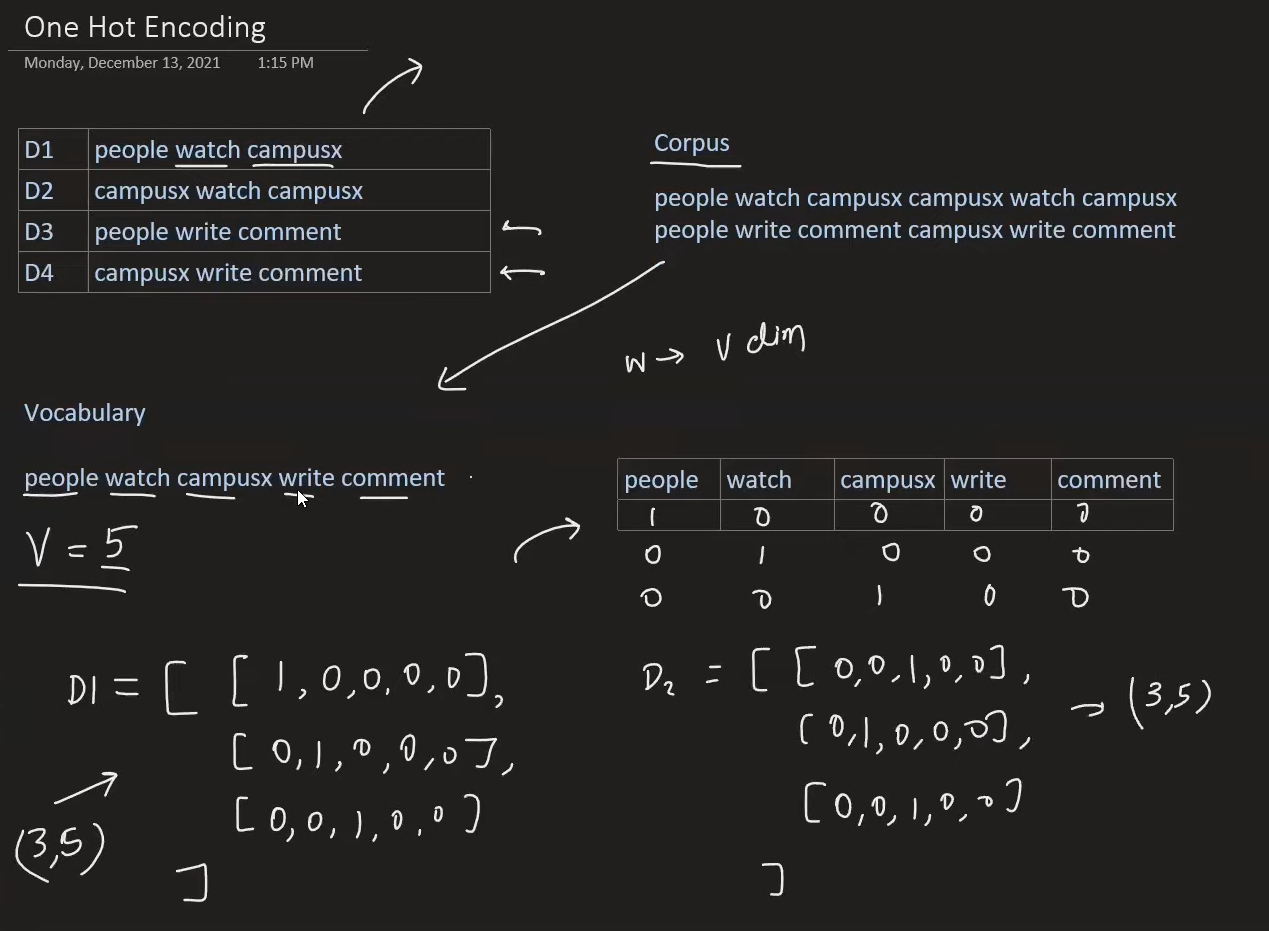 One Hot Encoding
Monday, December 13, 2021 1:15 PM
D1 people watch campusx
D2 campusx watch campusx
D3 people write comment
D4 campusx write comment
Corpus
people watch campusx campusx watch campusx
people write comment campusx write comment
W → V dim
Vocabulary
people watch campusx write comment
V = 5
people watch campusx write comment
1 0 0 0 0
0 1 0 0 0
0 0 1 0 0
D1 = [ [ 1, 0, 0, 0, 0 ],
[ 0, 1, 0, 0, 0 ],
[ 0, 0, 1, 0, 0 ]
]
(3,5)
D2 = [ [ 0, 0, 1, 0, 0 ],
[ 0, 1, 0, 0, 0 ],
[ 0, 0, 1, 0, 0 ]
]
→ (3,5)